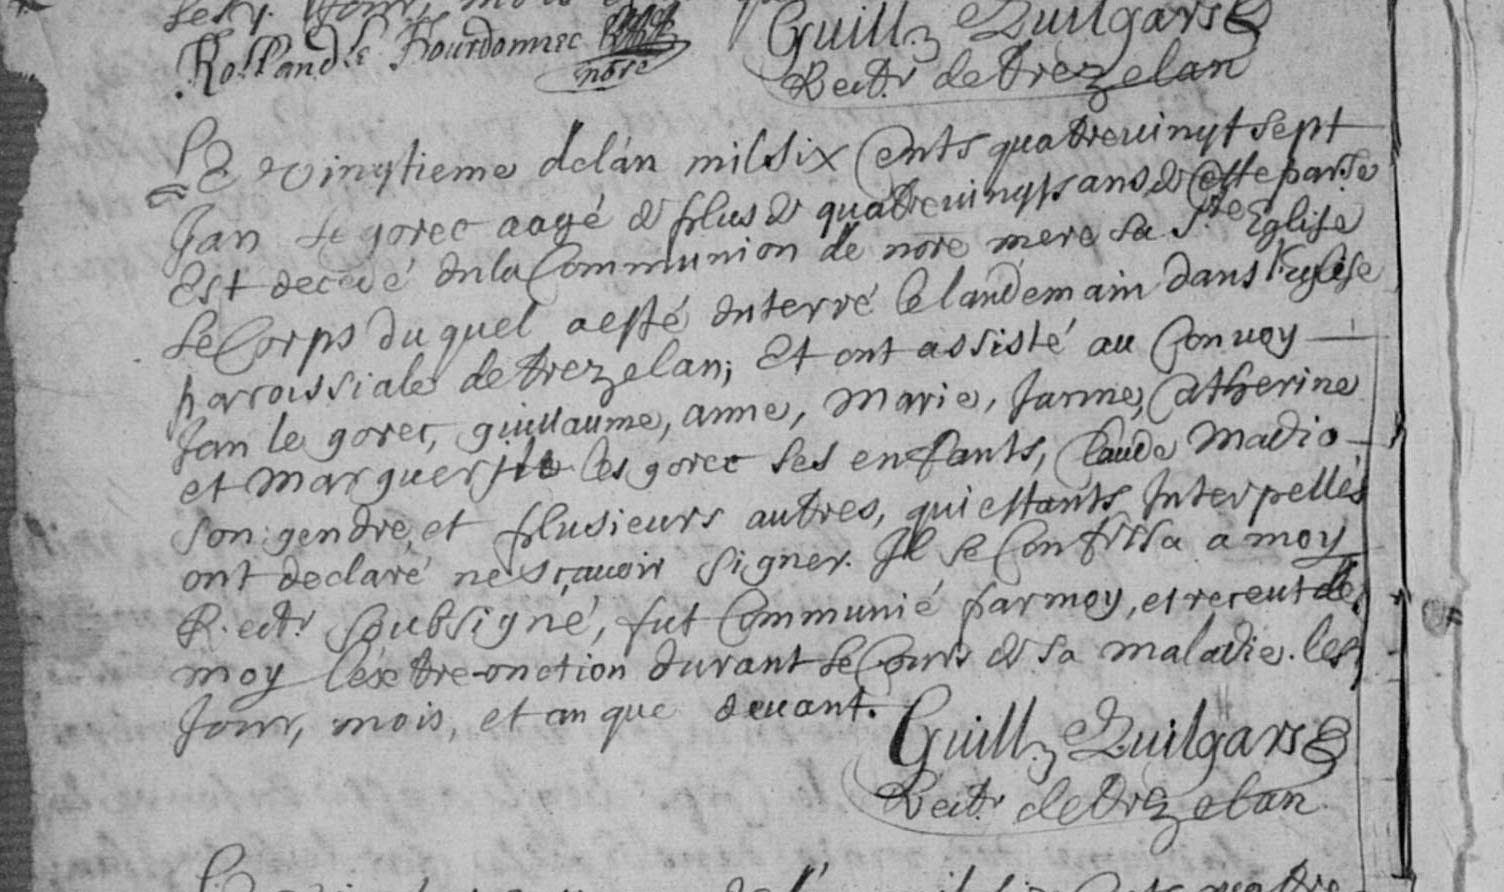 Jour, mois
Rolland le Hourdonnec nore
Guill. Quilgars
Rectr de trezelan
Le vingtieme de lán mil six Cents quatrevingt sept
Jan le gorec aagé de plus de quatrevingts ans de cette parse
Est decedé en la Communion de nore mere La Ste Eglise
Le Corps duquel a esté enterré le landemain dans l'eglise
parroissiale de trezelan; Et ont assisté au Convoy
Jan le gorec, guillaume, anne, Marie, Janne, Catherine
et Marguerite les gorec ses enfants, Claude Madio
son gendre, et plusieurs autres, qui estants Interpellés
ont declaré ne sçavoir signer. Il se Confessa a moy
Rectr soubsigné, fut Communié par moy, et receut de
moy l'éxtre-onction durant le Cours de sa maladie. les
Jour, mois, et an que devant.
Guill. Quilgars
Rectr de trezelan